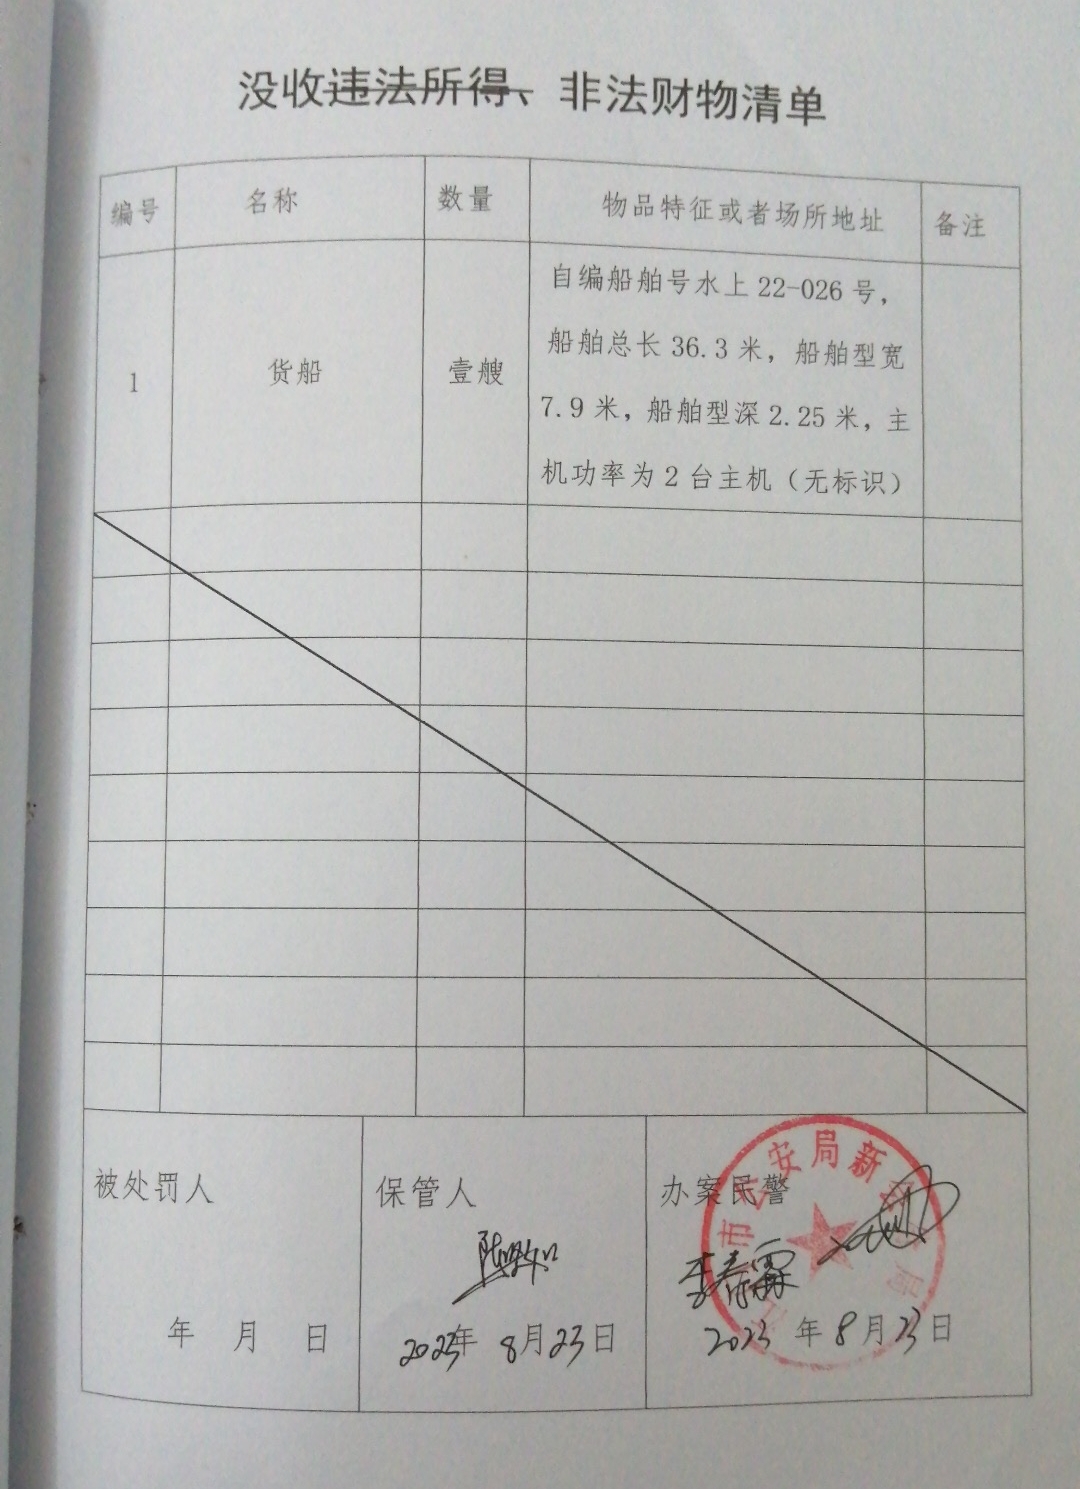 没收违法所得、非法财物清单
编号 名称 数量 物品特征或者场所地址 备注
1 货船 壹艘
自编船舶号水上 22-026 号，
船舶总长 36.3 米，船舶型宽
7.9 米，船舶型深 2.25 米，主
机功率为 2 台主机（无标识）
被处罚人 保管人 办案民警
李春霖
年 月 日 2023年 8月23日 2023 年 8月23日
市公安局新
局